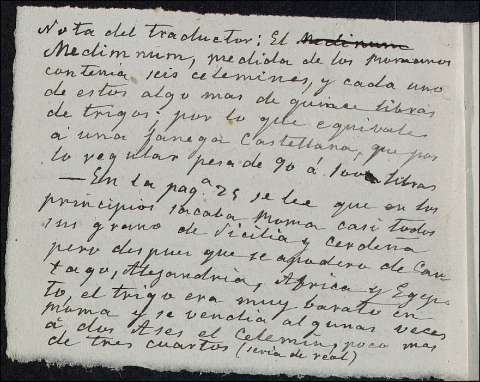 Nota del traductor: El Medinum
Medimnum, medida de los romanos
contenia seis celemines, y cada uno
de estos algo mas de quince libras
de trigo: por lo que equivale
á una fanega Castellana, que por
lo regular pesa de 90 á 100 libras
— En la pagª 25 se lee que en los
principios sacaba Roma casi todos
sus grano de Sicilia y Cerdeña
pero despues que se apodero de Car-
tago, Alejandria, Africa y Egyp-
to, el trigo era muy barato en
Roma y se vendia algunas veces
á dos Ases el Celemin, poco mas
de tres cuartos (seria de real)